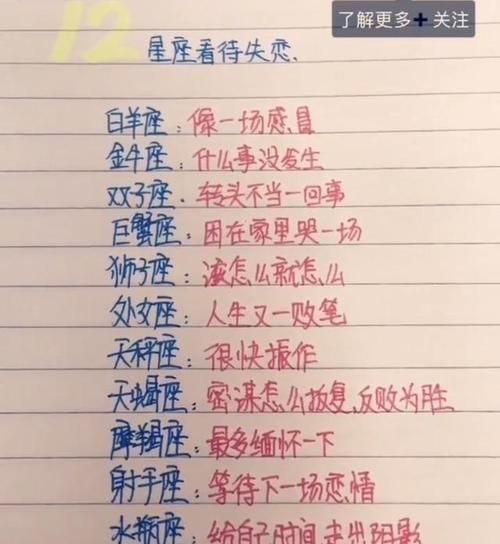 了解更多+关注
12
星座看待失恋.
白羊座:像一场感冒
金牛座:什么事没发生
双子座.转头不当一回事
巨蟹座:困在家里哭一场
狮子座:该怎么就怎么
处女座:人生又一败笔
天秤座:很快振作
天蝎座:密谋怎么报复,反败为胜
摩羯座:最多缅怀一下
射手座:等待下一场恋情
水瓶座:给自己时间走出阴影